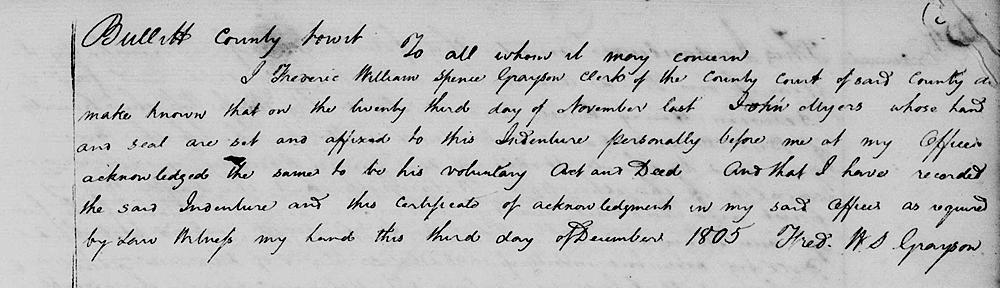 Bullitt County towit To all whom it may concern
I Frederic William Spence Grayson Clerk of the County Court of said County do
make known that on the twenty third day of November last John Myers whose hand
and seal are set and affixed to this Indenture personally before me at my Office
acknowledged the same to be his voluntary Act and Deed And that I have recorded
the said Indenture and this Certificate of acknowledgment in my said Office as required
by Law Witness my hand this third day of December 1805 Fred. W. S. Grayson